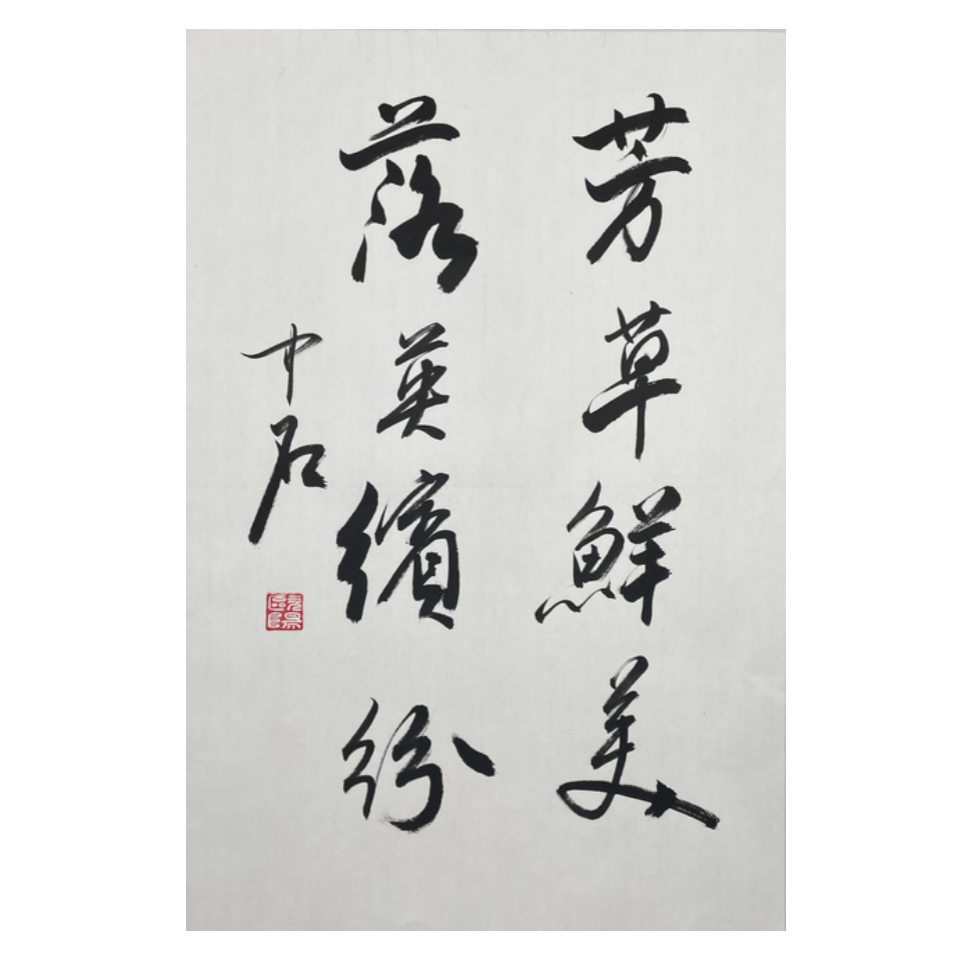 芳草鮮美
落英繽紛
中石